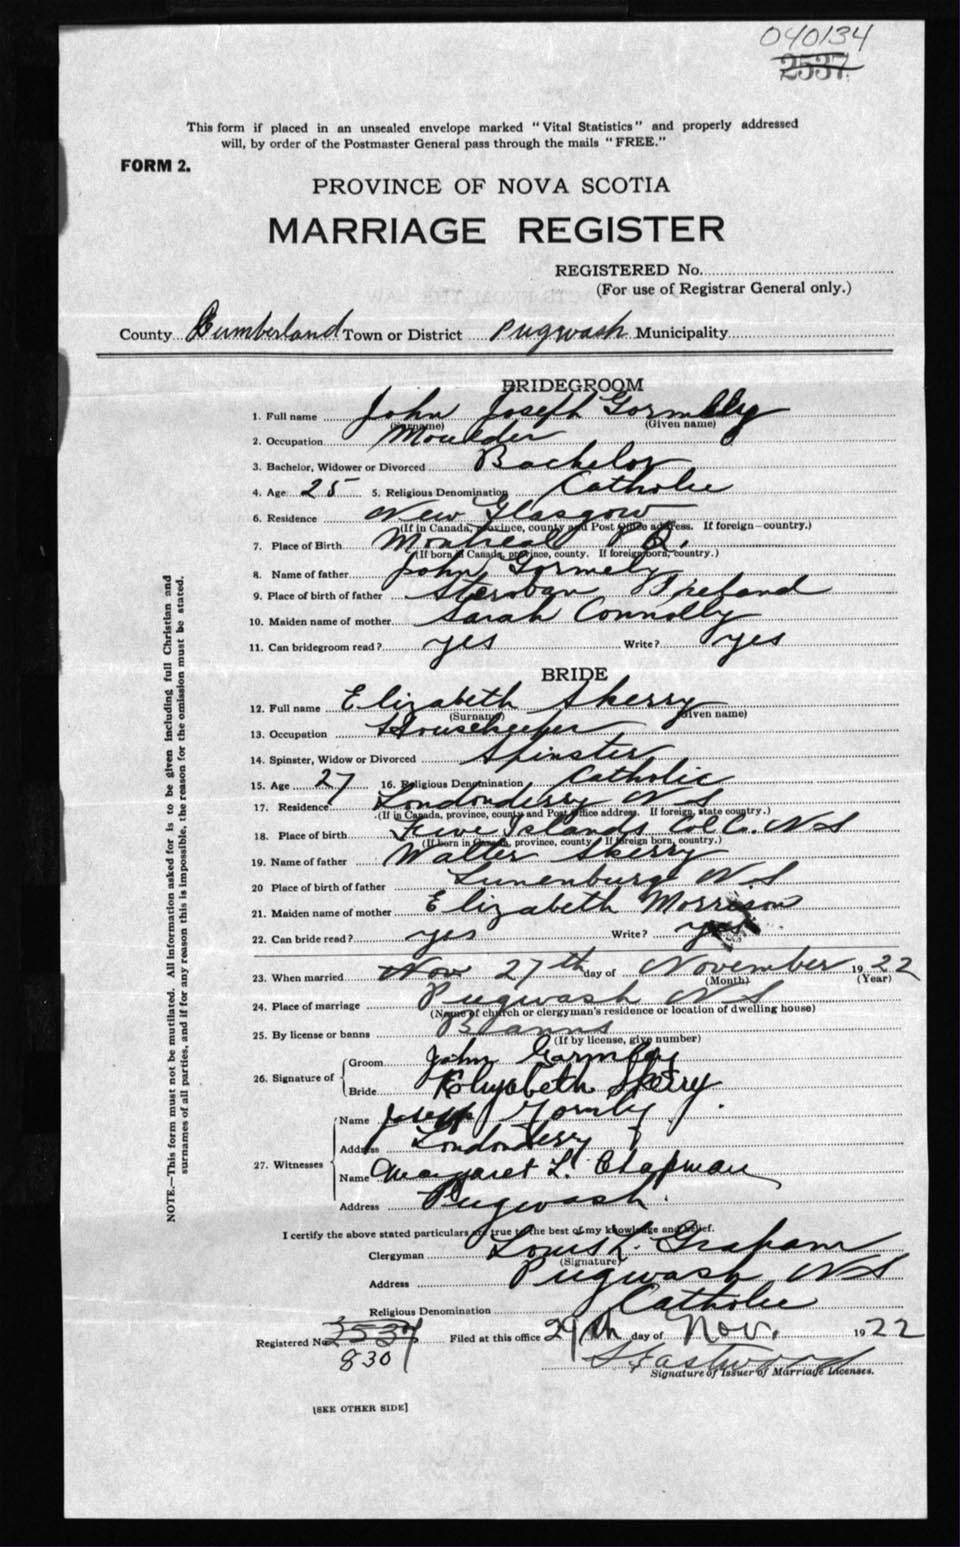 040134
2537
This form if placed in an unsealed envelope marked "Vital Statistics" and properly addressed
will, by order of the Postmaster General pass through the mails "FREE."
FORM 2.
PROVINCE OF NOVA SCOTIA
MARRIAGE REGISTER
REGISTERED No.
(For use of Registrar General only.)
County Cumberland Town or District Pugwash Municipality
BRIDEGROOM
1. Full name John Joseph Gormlly
(Surname) (Given name)
2. Occupation Moulder
3. Bachelor, Widower or Divorced Bachelor
4. Age 25 5. Religious Denomination Catholic
6. Residence New Glasgow
(If in Canada, province, county and Post Office address. If foreign—country.)
7. Place of Birth Montreal P Q.
(If born in Canada, province, county. If foreign born, country.)
8. Name of father John Gormely
9. Place of birth of father Ireland
10. Maiden name of mother Sarah Connolly
11. Can bridegroom read? yes Write? yes
BRIDE
12. Full name Elizabeth Skerry
(Surname) (Given name)
13. Occupation Housekeeper
14. Spinster, Widow or Divorced Spinster
15. Age 27 16. Religious Denomination Catholic
17. Residence Londonderry N S
(If in Canada, province, county and Post Office address. If foreign, state country.)
18. Place of birth Five Islands Col Co. N S
(If born in Canada, province, county If foreign born, country.)
19. Name of father Walter Skerry
20 Place of birth of father Lunenburg N.S
21. Maiden name of mother Elizabeth Morrison
22. Can bride read? yes Write? yes
23. When married Nov 27th day of November 1922
(Month) (Year)
24. Place of marriage Pugwash N S
(Name of church or clergyman's residence or location of dwelling house)
25. By license or banns Banns
(If by license, give number)
26. Signature of
Groom John Gormley
Bride Elizabeth Skerry
27. Witnesses
Name Joseph Gormly
Address Londonderry
Name Margaret L. Chapman
Address Pugwash.
I certify the above stated particulars are true to the best of my knowledge and belief.
Clergyman Louis L. Graham
(Signature)
Address Pugwash N S
Religious Denomination Catholic
Registered No. 2537 Filed at this office 29th day of Nov. 1922
830
Eastwood
Signature of Issuer of Marriage Licenses.
[SEE OTHER SIDE]
NOTE.—This form must not be mutilated. All information asked for is to be given including full Christian and
surnames of all parties, and if for any reason this is impossible, the reason for the omission must be stated.